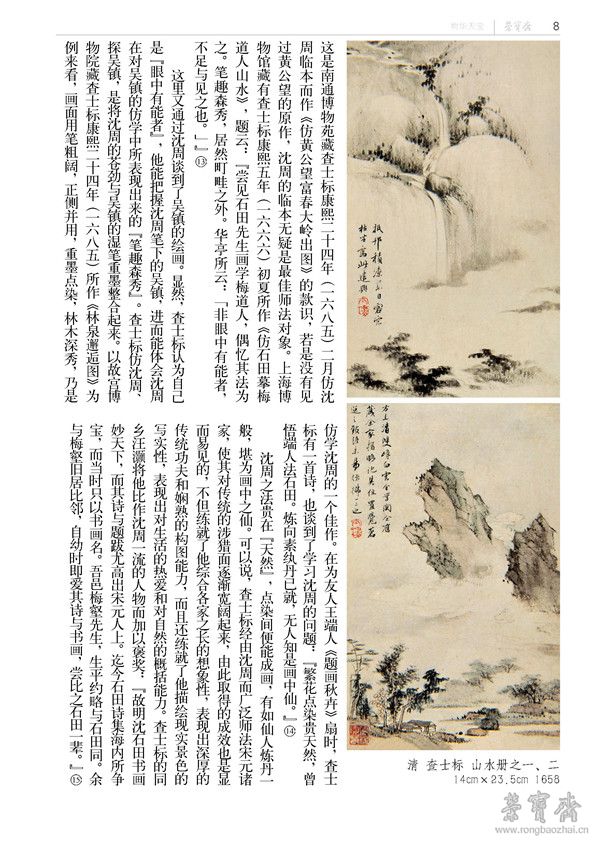 物华天宝 荣宝斋 8
这是南通博物苑藏查士标康熙二十四年（一六八五）二月仿沈
周临本而作《仿黄公望富春大岭出图》的款识，若是没有见
过黄公望的原作，沈周的临本无疑是最佳师法对象。上海博
物馆藏有查士标康熙五年（一六六六）初夏所作《仿石田摹梅
道人山水》，题云：『尝见石田先生画学梅道人，偶忆其法为
之。笔趣森秀，居然町畦之外。华亭所云：「非眼中有能者，
不足与见之也。」』⑬
这里又通过沈周谈到了吴镇的绘画。显然，查士标认为自己
是『眼中有能者』，他能把握沈周笔下的吴镇，进而能体会沈周
在对吴镇的仿学中所表现出来的『笔趣森秀』。查士标仿沈周、
探吴镇，是将沈周的苍劲与吴镇的湿笔重墨整合起来。以故宫博
物院藏查士标康熙二十四年（一六八五）所作《林泉邂逅图》为
例来看，画面用笔粗阔，正侧并用，重墨点染，林木深秀，乃是
仿学沈周的一个佳作。在为友人王端人《题画秋卉》扇时，查士
标有一首诗，也谈到了学习沈周的问题：『繁花点染贵天然，曾
悟端人法石田。炼向素纨丹已就，无人知是画中仙。』⑭
沈周之法贵在『天然』，点染间便能成画，有如仙人炼丹一
般，堪为画中之仙。可以说，查士标经由沈周而广泛师法宋元诸
家，使其对传统的涉猎面逐渐宽阔起来，由此取得的成效也是显
而易见的，不但练就了他综合各家之长的想象性，表现出深厚的
传统功夫和娴熟的构图能力，而且还练就了他描绘现实景色的
写实性，表现出对生活的热爱和对自然的概括能力。查士标的同
乡汪灏将他比作沈周一流的人物而加以褒奖：『故明沈石田书画
妙天下，而其诗与题跋尤高出宋元人上。迄今石田诗集海内所争
宝，而当时只以书画名。吾邑梅壑先生，生平约略与石田同。余
与梅壑旧居比邻，自幼时即爱其诗与书画，尝比之石田一辈。』⑮
清 查士标 山水册之一、二
14cm×23.5cm 1658
荣宝斋
www.rongbaozhai.cn